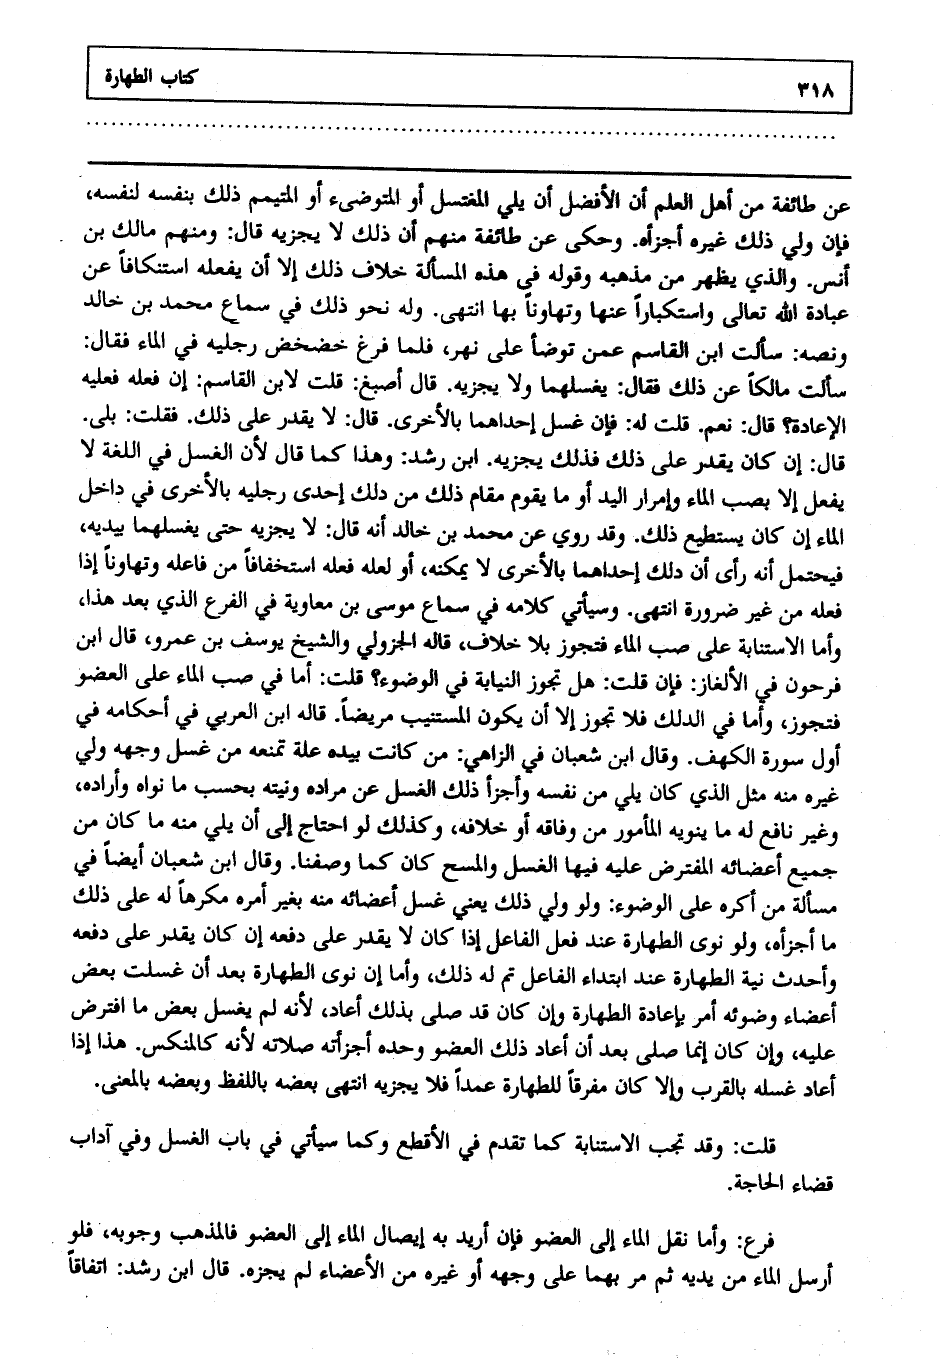 ٣١٨ كتاب الطهارة
عن طائفة من أهل العلم أن الأفضل أن يلي المغتسل أو المتوضىء أو المتيمم ذلك بنفسه لنفسه،
فإن ولي ذلك غيره أجزأه. وحكى عن طائفة منهم أن ذلك لا يجزيه قال: ومنهم مالك بن
أنس. والذي يظهر من مذهبه وقوله في هذه المسألة خلاف ذلك إلا أن يفعله استنكافاً عن
عبادة الله تعالى واستكباراً عنها وتهاوناً بها انتهى. وله نحو ذلك في سماع محمد بن خالد
ونصه: سألت ابن القاسم عمن توضأ على نهر، فلما فرغ خضخض رجليه في الماء فقال:
سألت مالكاً عن ذلك فقال: يغسلهما ولا يجزيه. قال أصبغ: قلت لابن القاسم: إن فعله فعليه
الإعادة؟ قال: نعم. قلت له: فإن غسل إحداهما بالأخرى. قال: لا يقدر على ذلك. فقلت: بلى.
قال: إن كان يقدر على ذلك فذلك يجزيه. ابن رشد: وهذا كما قال لأن الغسل في اللغة لا
يفعل إلا بصب الماء وإمرار اليد أو ما يقوم مقام ذلك من دلك إحدى رجليه بالأخرى في داخل
الماء إن كان يستطيع ذلك. وقد روي عن محمد بن خالد أنه قال: لا يجزيه حتى يغسلهما بيديه،
فيحتمل أنه رأى أن دلك إحداهما بالأخرى لا يمكنه، أو لعله فعله استخفافاً من فاعله وتهاوناً إذا
فعله من غير ضرورة انتهى. وسيأتي كلامه في سماع موسى بن معاوية في الفرع الذي بعد هذا،
وأما الاستنابة على صب الماء فتجوز بلا خلاف، قاله الجزولي والشيخ يوسف بن عمرو، قال ابن
فرحون في الألغاز: فإن قلت: هل تجوز النيابة في الوضوء؟ قلت: أما في صب الماء على العضو
فتجوز، وأما في الدلك فلا تجوز إلا أن يكون المستنيب مريضاً. قاله ابن العربي في أحكامه في
أول سورة الكهف. وقال ابن شعبان في الزاهي: من كانت بيده علة تمنعه من غسل وجهه ولي
غيره منه مثل الذي كان يلي من نفسه وأجزأ ذلك الغسل عن مراده ونيته بحسب ما نواه وأراده،
وغير نافع له ما ينويه المأمور من وفاقه أو خلافه، وكذلك لو احتاج إلى أن يلي منه ما كان من
جميع أعضائه المفترض عليه فيها الغسل والمسح كان كما وصفنا. وقال ابن شعبان أيضاً في
مسألة من أكره على الوضوء: ولو ولي ذلك يعني غسل أعضائه منه بغير أمره مكرهاً له على ذلك
ما أجزأه، ولو نوى الطهارة عند فعل الفاعل إذا كان لا يقدر على دفعه إن كان يقدر على دفعه
وأحدث نية الطهارة عند ابتداء الفاعل تم له ذلك، وأما إن نوى الطهارة بعد أن غسلت بعض
أعضاء وضوئه أمر بإعادة الطهارة وإن كان قد صلى بذلك أعاد، لأنه لم يغسل بعض ما افترض
عليه، وإن كان إنما صلى بعد أن أعاد ذلك العضو وحده أجزأته صلاته لأنه كالمنكس. هذا إذا
أعاد غسله بالقرب وإلا كان مفرقاً للطهارة عمداً فلا يجزيه انتهى بعضه باللفظ وبعضه بالمعنى.
قلت: وقد تجب الاستنابة كما تقدم في الأقطع وكما سيأتي في باب الغسل وفي آداب
قضاء الحاجة.
فرع: وأما نقل الماء إلى العضو فإن أريد به إيصال الماء إلى العضو فالمذهب وجوبه، فلو
أرسل الماء من يديه ثم مر بهما على وجهه أو غيره من الأعضاء لم يجزه. قال ابن رشد: اتفاقاً